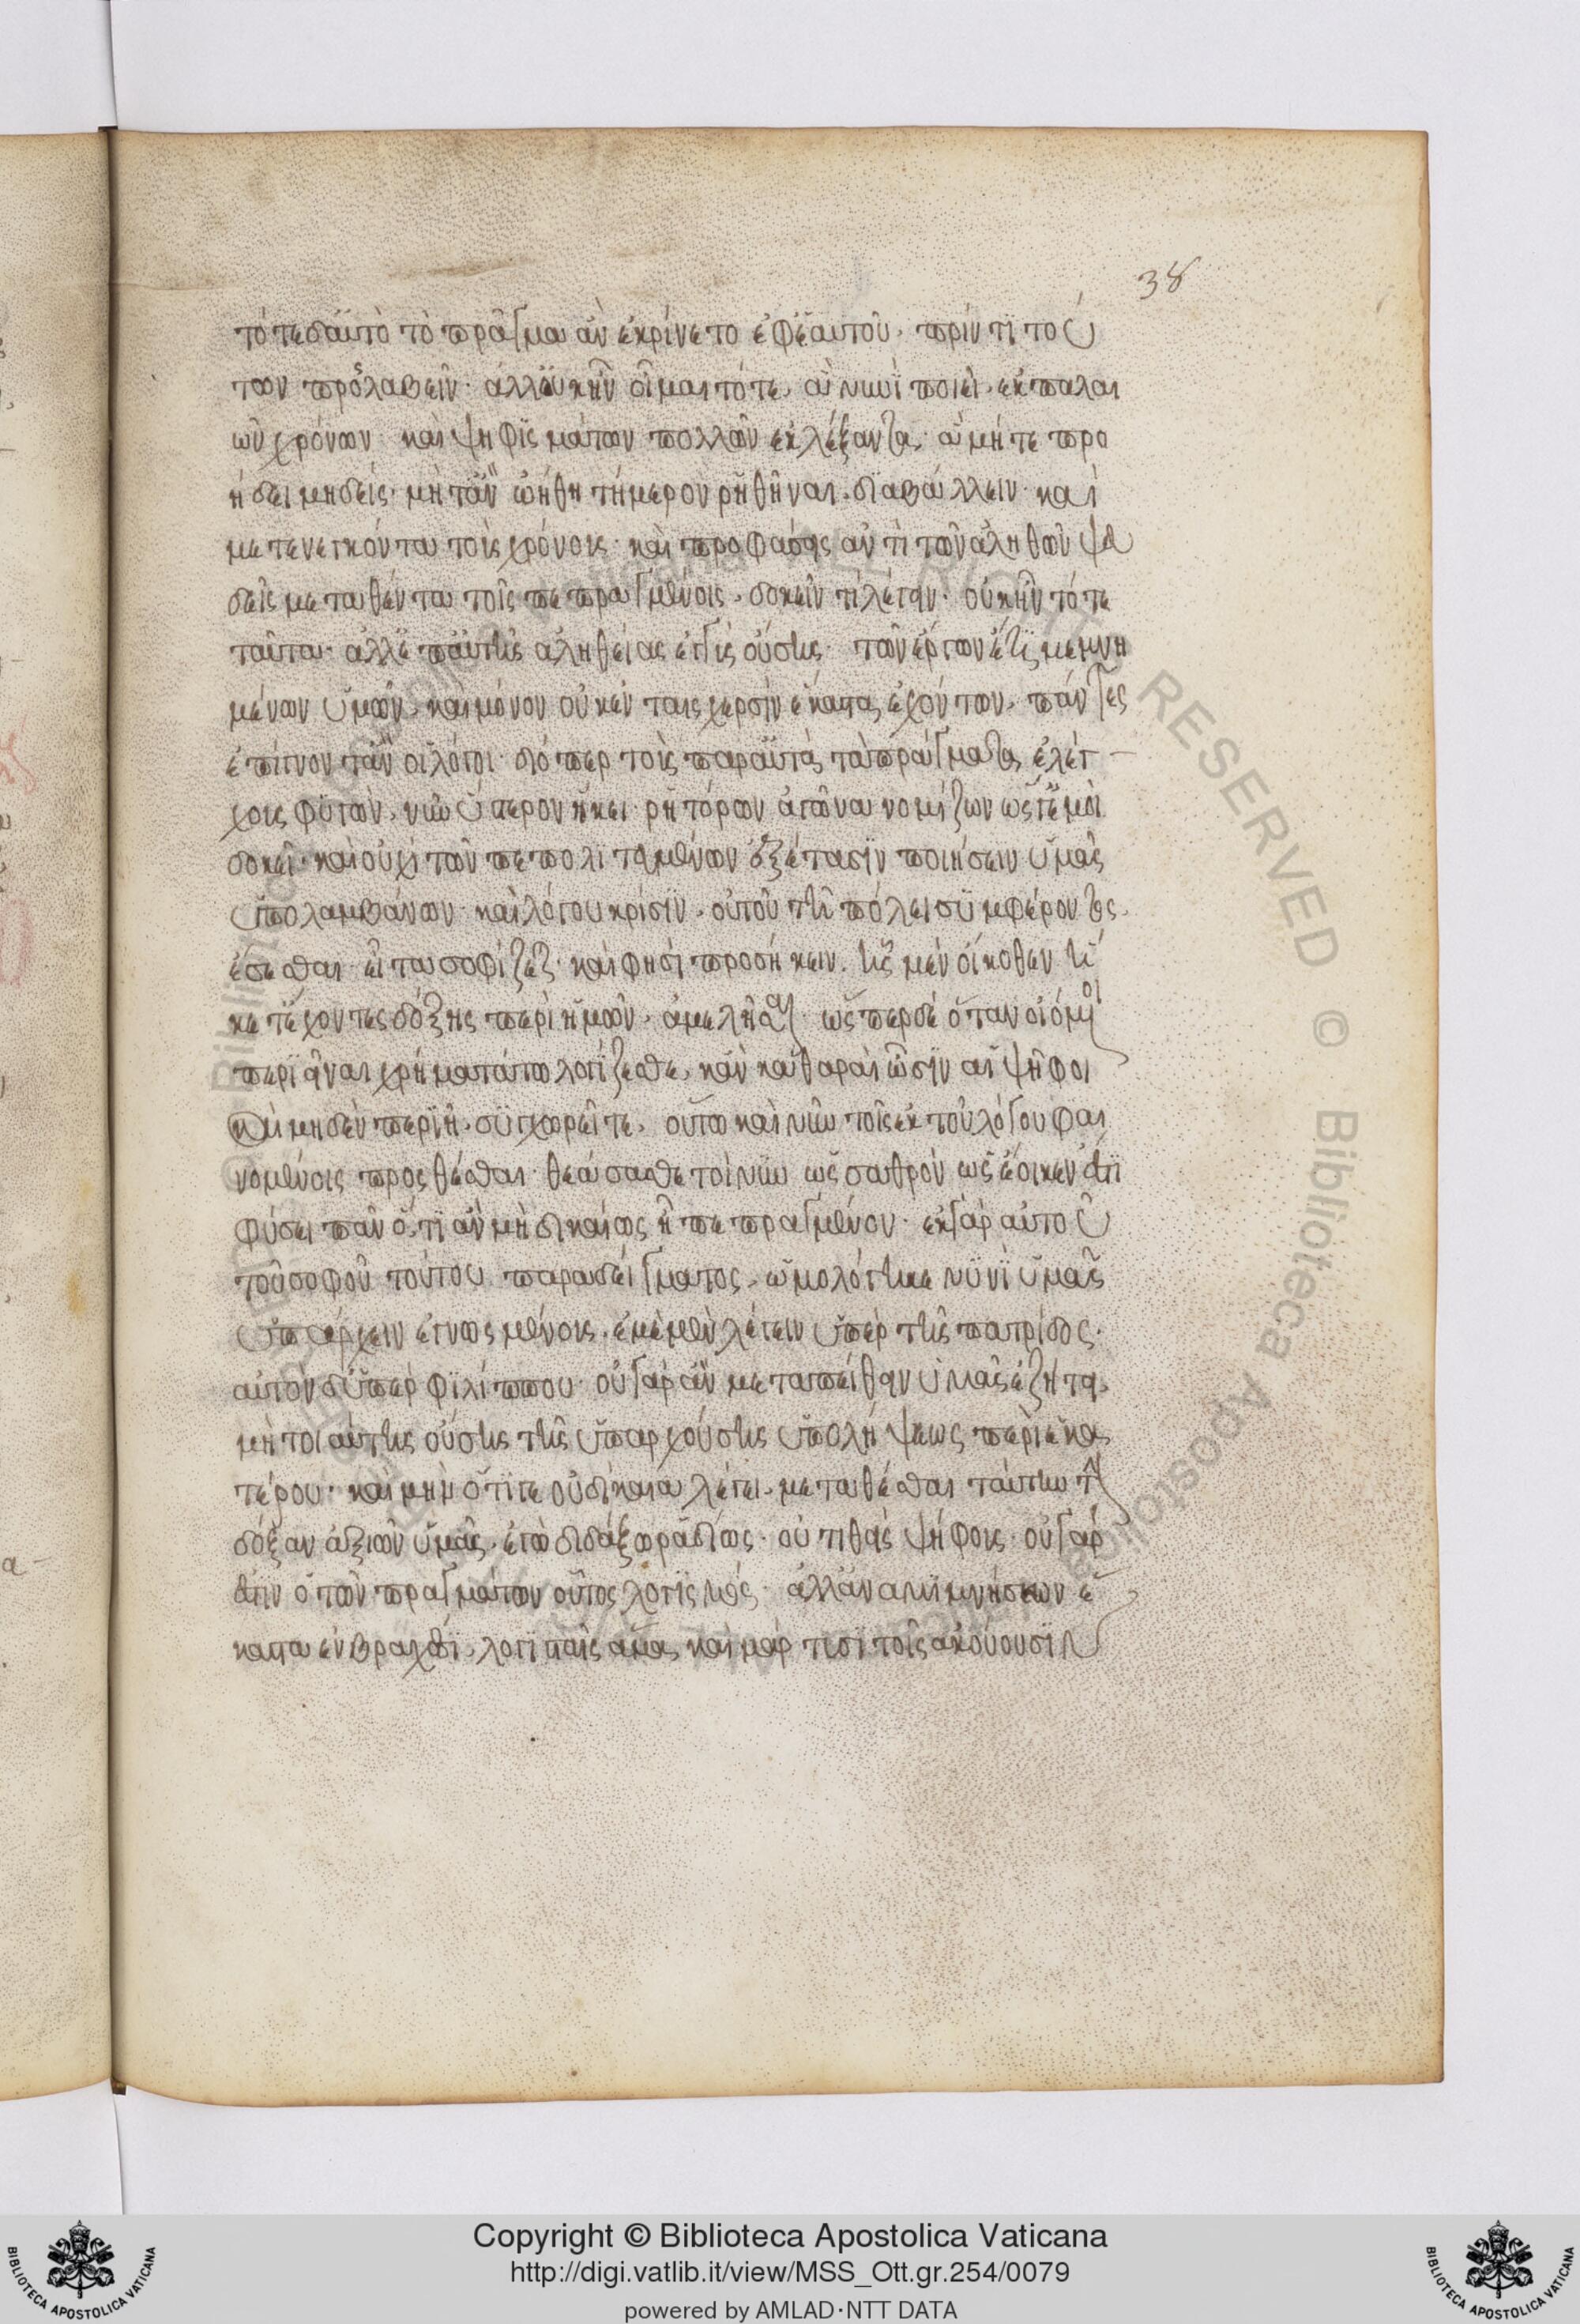 38
τότε δ' αὐτὸ τὸ πρᾶγμα ἂν ἐκρίνετο ἐφ' ἑαυτοῦ· πρίν τι τού
των προλαβεῖν· ἀλλ' οὐκ ἦν οἶμαι τότε, ἃ νυνὶ ποιεῖ, ἐκ παλαι
ῶν χρόνων καὶ ψηφισμάτων πολλῶν ἐκλέξαντα, ἃ μήτε προ
ήδει μηδεὶς· μήτ' ἂν ᾠήθη τήμερον ῥηθῆναι, διαβάλλειν· καὶ
μετενεγκόντα τοὺς χρόνους· καὶ προφάσεις ἀντὶ τῶν ἀληθῶν ψευ
δεῖς μεταθέντα τοῖς πεπραγμένοις, δοκεῖν τι λέγειν· οὐκ ἦν τότε
ταῦτα· ἀλλ' ἐπ' αὐτῆς ἀληθείας ἐγγὺς οὔσης· τῶν ἔργων ἔτι μεμνη
μένων ὑμῶν, καὶ μόνον οὐκ ἐν ταῖς χερσὶν ἕκαστα ἐχόντων, πάντες
ἐγίγνοντ' ἂν οἱ λόγοι· διόπερ τοὺς παρ' αὐτὰ τὰ πράγματα ἐλέγ
χους φυγὼν, νῦν ὕστερον ἥκει· ῥητόρων ἀγῶνα νομίζων ὥς γ' ἐμοὶ
δοκεῖ· καὶ οὐχὶ τῶν πεπολιτευμένων ἐξέτασιν ποιήσειν ὑμᾶς
ὑπολαμβάνων· καὶ λόγου κρίσιν, οὐ τοῦ τῇ πόλει συμφέροντος
ἔσεσθαι· εἶτα σοφίζεται· καὶ φησὶ προσήκειν, ἧς μὲν οἴκοθεν
ἥκετ' ἔχοντες δόξης περὶ ἡμῶν, ἀμελῆσαι· ὥσπερ δὲ ὅταν οἰόμενοι
περιεῖναι χρήματά τῳ λογίζησθε, κἂν καθαραὶ ὦσιν αἱ ψῆφοι
καὶ μηδὲν περιῇ, συγχωρεῖτε, οὕτω καὶ νῦν τοῖς ἐκ τοῦ λόγου φαι
νομένοις προσθέσθαι· θεάσασθε τοίνυν ὡς σαθρὸν ὡς ἔοικεν ἐστὶ
φύσει πᾶν ὅ,τι ἂν μὴ δικαίως ᾖ πεπραγμένον· ἐκ γὰρ αὐτοῦ
τοῦ σοφοῦ τούτου παραδείγματος, ὡμολόγηκε νυνὶ ὑμᾶς
ὑπάρχειν ἐγνωσμένους, ἐμὲ μὲν λέγειν ὑπὲρ τῆς πατρίδος·
αὐτὸν δ' ὑπὲρ Φιλίππου· οὐ γὰρ ἂν μεταπείθειν ὑμᾶς ἐζήτει,
μὴ τοιαύτης οὔσης τῆς ὑπαρχούσης ὑπολήψεως περὶ ἑκα
τέρου· καὶ μὴν ὅτι γε οὐ δίκαια λέγει, μεταθέσθαι ταύτην τὴν
δόξαν ἀξιῶν ὑμᾶς, ἐγὼ διδάξω ῥᾳδίως· οὐ τιθεὶς ψήφους· οὐ γάρ
ἐστιν ὁ τῶν πραγμάτων οὗτος λογισμός· ἀλλ' ἀναμιμνήσκων ἕ
καστα ἐν βραχέσι, λογισταῖς ἅμα καὶ μάρτυσι τοῖς ἀκούουσιν